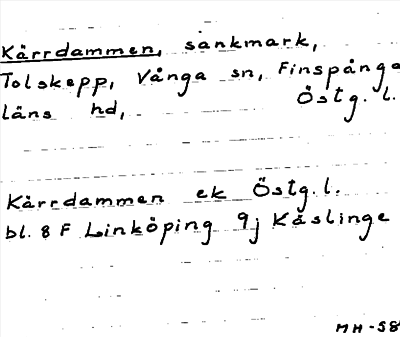 Kärrdammen, sankmark,
Tolskepp, Vånga sn, Finspånga
läns hd, Östg. l.
Kärrdammen ek Östg. l.
bl. 8 F Linköping 9j Käslinge
MH-58